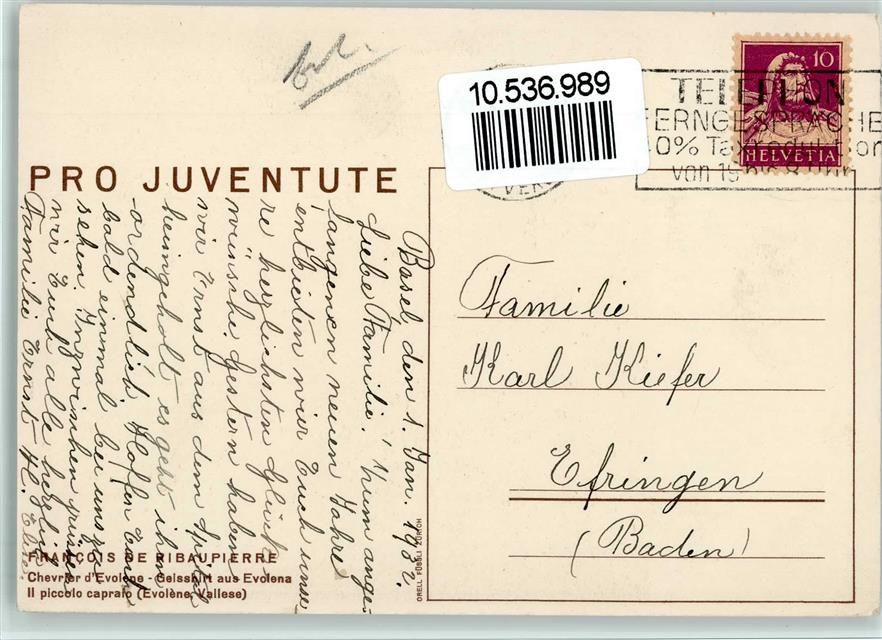 10.536.989
10
TELEPHON
FERNGESPRÄCHE
40% Taxreduktion
von 19 bis 8 Uhr
HELVETIA
PRO JUVENTUTE
Basel den 1. Jan. 1932.
Liebe Familie! Zum ange-
langenen neuen Jahre
entbieten wir Euch unse
re herzlichsten Glück
wünsche. Gestern haben
wir Ernst aus dem Spital
heimgeholt es geht ihm
ordendlich. Hoffen Euch
bald einmal bei uns zu
sehen. Inzwischen grüssen
wir Euch alle herzlich
Familie Ernst H.
Familie
Karl Kiefer
Efringen
(Baden)
FRANÇOIS DE RIBAUPIERRE
Chevrier d'Evolène - Geisshirt aus Evolena
Il piccolo capraio (Evolène, Vallese)
ORELL FÜSSLI ZÜRICH